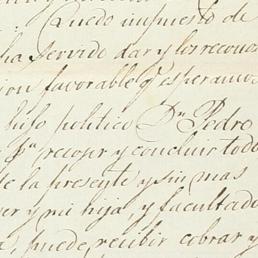 Quedo impuesto de
ha servido dar y los recono
ion favorable qe. esperamos
hijo politico Dn. Pedro
pa. recojer y concluir todo
te la presente y sin mas
er y mi hija, y facultado
puede recibir cobrar y